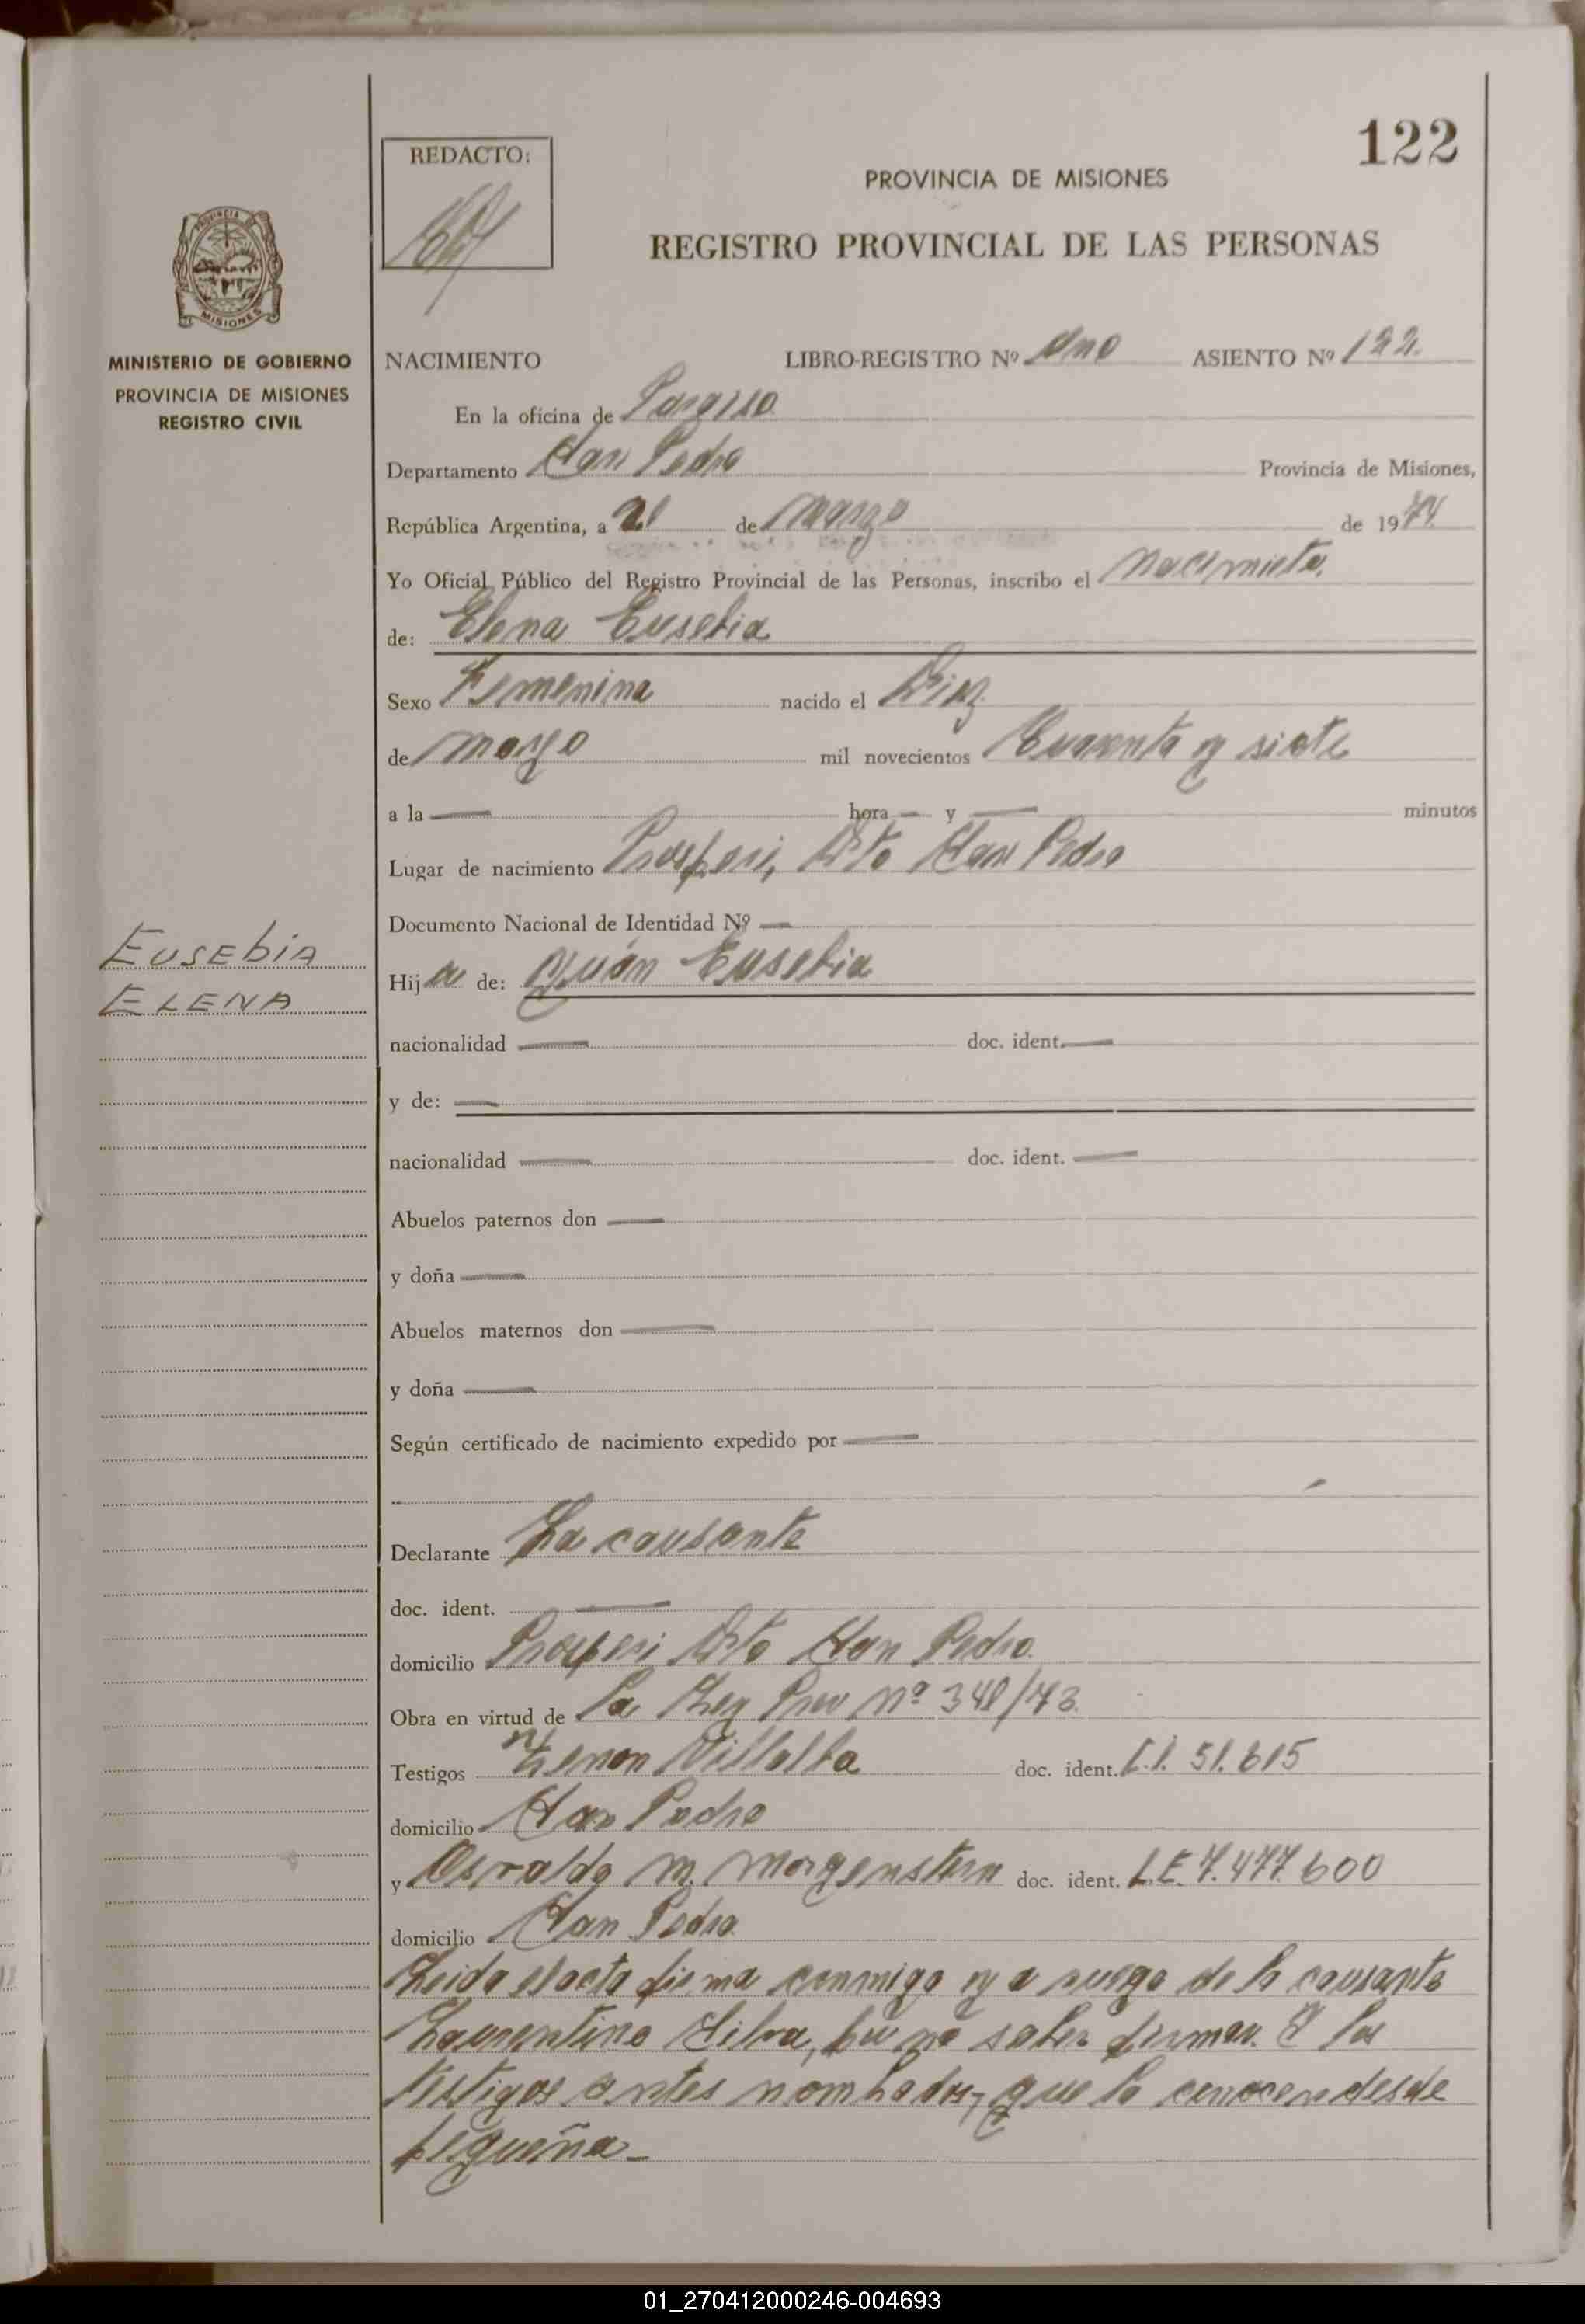 122
REDACTO:
PROVINCIA DE MISIONES
REGISTRO PROVINCIAL DE LAS PERSONAS
MISIONES
MINISTERIO DE GOBIERNO
PROVINCIA DE MISIONES
REGISTRO CIVIL
NACIMIENTO LIBRO-REGISTRO Nº Uno ASIENTO Nº 122.
En la oficina de Paraiso
Departamento San Pedro Provincia de Misiones,
República Argentina, a 21 de Marzo de 1974
Yo Oficial Público del Registro Provincial de las Personas, inscribo el Nacimieto.
de: Elena Eusebia
Sexo Femenina nacido el Diez
de marzo mil novecientos Cuarenta y siete
a la — hora — y — minutos
Lugar de nacimiento Prosperi, Dto San Pedro
Documento Nacional de Identidad Nº —
EUSEBIA
ELENA
Hija de: Juán Eusebia
nacionalidad — doc. ident. —
y de: —
nacionalidad — doc. ident. —
Abuelos paternos don —
y doña —
Abuelos maternos don —
y doña —
Según certificado de nacimiento expedido por —
Declarante La causante
doc. ident. —
domicilio Prosperi Dto San Pedro.
Obra en virtud de la Ley Prov Nº 348/73.
Testigos Zenon Villalba doc. ident. C.I. 51.615
domicilio San Pedro
y Osvaldo M. Morgenstern doc. ident. L.E. 7.477.600
domicilio San Pedro
Leida el acta firma conmigo y a ruego de la causante
Laurentino Silva, por no saber firmar. Y los
testigos antes nombados, que la conocen desde
pequeña -
01_270412000246-004693